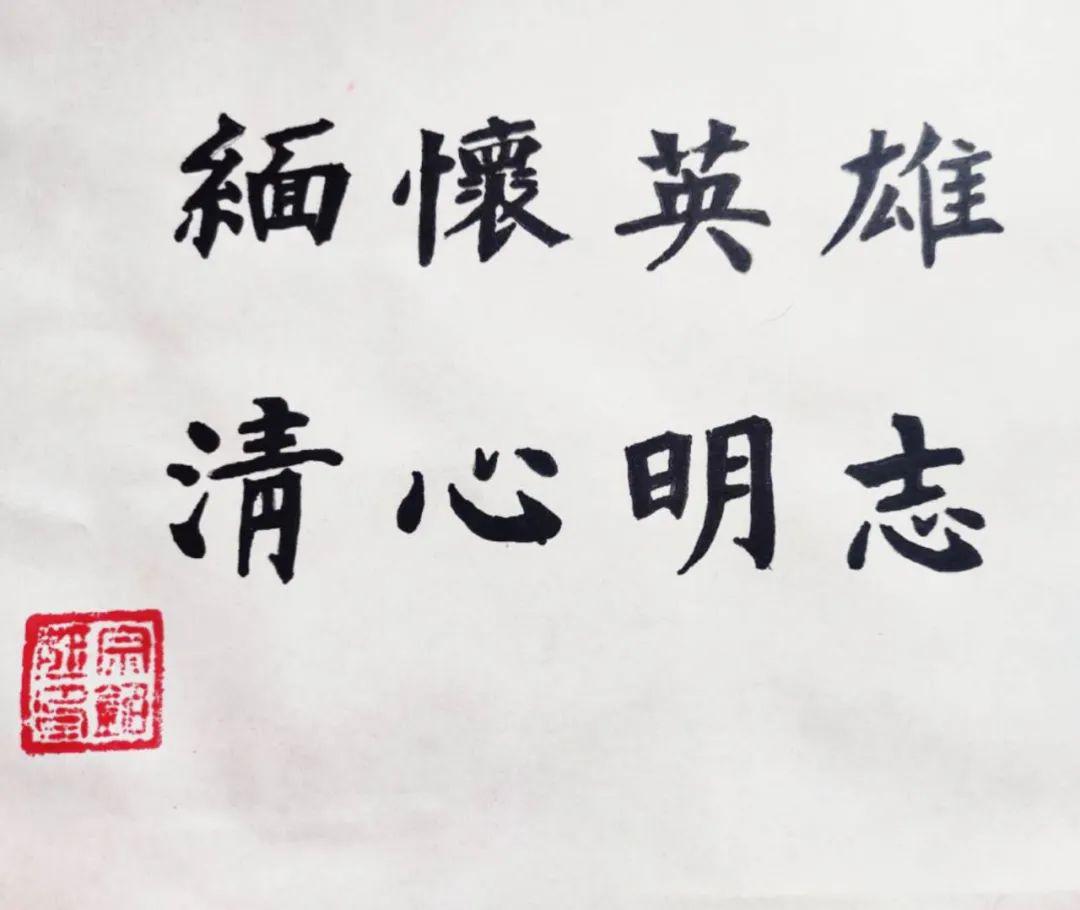 緬懷英雄
清心明志